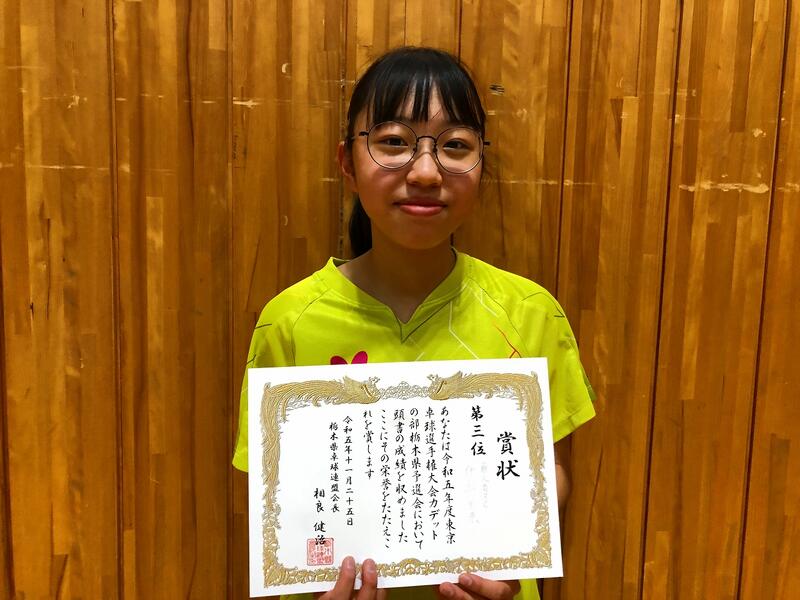 賞状
第三位
あなたは令和五年度東京
卓球選手権大会カデット
の部栃木県予選会において
頭書の成績を収めました
ここにその栄誉をたたえこ
れを賞します
令和五年十一月二十五日
栃木県卓球連盟会長
相良 健治